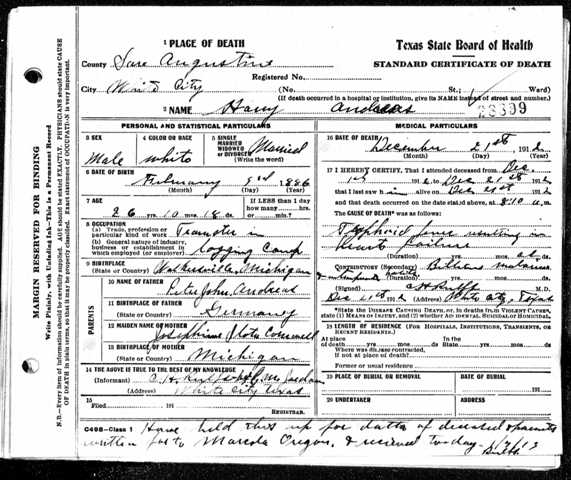 1 PLACE OF DEATH
Texas State Board of Health
County San Augustine
STANDARD CERTIFICATE OF DEATH
Registered No.
City White City (No. St.; Ward)
(If death occurred in a hospital or institution, give its NAME instead of street and number.)
2 NAME Harry Andreas
28309
PERSONAL AND STATISTICAL PARTICULARS
3 SEX Male
4 COLOR OR RACE White
5 SINGLE MARRIED WIDOWED OR DIVORCED (Write the word) Married
6 DATE OF BIRTH
February 3rd 1886
(Month) (Day) (Year)
7 AGE
26 yrs. 10 mos. 18 ds.
If LESS than 1 day how many hrs. or min.?
8 OCCUPATION
(a) Trade, profession or particular kind of work Teamster in
(b) General nature of industry, business or establishment in which employed (or employer) logging Camp
9 BIRTHPLACE
(State or Country) Michigan
PARENTS
10 NAME OF FATHER
Peter John Andreas
11 BIRTHPLACE OF FATHER
(State or Country) Germany
12 MAIDEN NAME OF MOTHER
Josephine
13 BIRTHPLACE OF MOTHER
(State or Country) Michigan
14 THE ABOVE IS TRUE TO THE BEST OF MY KNOWLEDGE
(Informant)
(Address) White City Texas
15
Filed 191
REGISTRAR.
MEDICAL PARTICULARS
16 DATE OF DEATH
December 21st 1912
(Month) (Day) (Year)
17 I HERETBY CERTIFY, That I attended deceased from Dec
1st 1912 to Dec 21st 1912
that I last saw him alive on Dec 21st 1912
and that death occurred on the date stated above, at 8:10 a.m.
The CAUSE OF DEATH was as follows:
Typhoid fever resulting in
heart failure
(Duration) yrs. mos. ds.
CONTRIBUTORY (Secondary)
(Duration) yrs. mos. ds.
(Signed) M.D.
Dec 21st 1912 (Address) White City, Texas
*State the DISEASE CAUSING DEATH, or, in deaths from VIOLENT CAUSES, state (1) MEANS OF INJURY; and (2) whether ACCIDENTAL, SUICIDAL or HOMICIDAL.
18 LENGTH OF RESIDENCE (FOR HOSPITALS, INSTITUTIONS, TRANSIENTS, OR RECENT RESIDENTS.)
At place of death yrs. mos. ds. In the State yrs. mos. ds.
Where was disease contracted, if not at place of death?
Former or usual residence
19 PLACE OF BURIAL OR REMOVAL
DATE OF BURIAL
191
20 UNDERTAKER
ADDRESS
C408-Class 1 Have held this up for data of deceased's parents
written for to Marcola Oregon, & received today
MARGIN RESERVED FOR BINDING
Write Plainly, with Unfading Ink—This is a Permanent Record
N.B.—Every item of information should be carefully supplied. AGE should be stated EXACTLY. PHYSICIANS should state CAUSE OF DEATH in plain terms, so that it may be properly classified. Exact statement of OCCUPATION is very important.